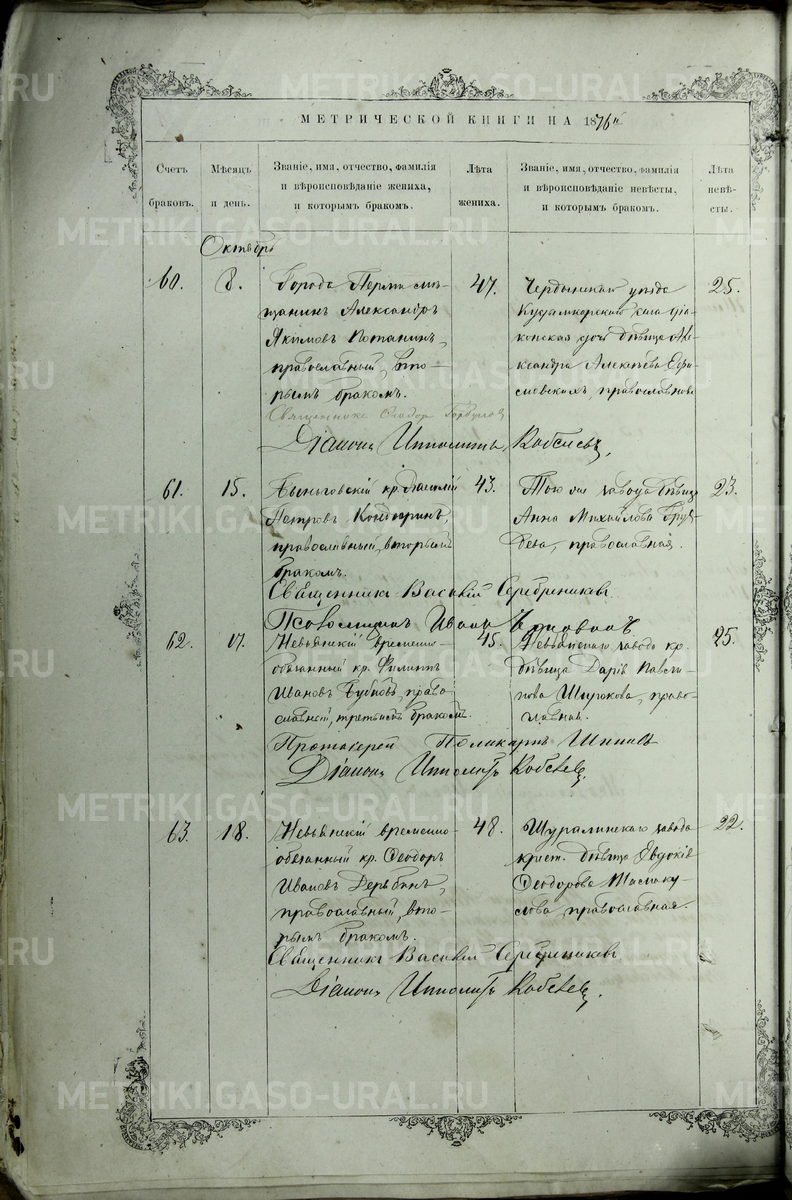 МЕТРИЧЕСКОЙ КНИГИ НА 1876й
Счетъ браковъ.
Мѣсяцъ и день.
Званіе, имя, отчество, фамилія и вѣроисповѣданіе жениха, и которымъ бракомъ.
Лѣта жениха.
Званіе, имя, отчество, фамилія и вѣроисповѣданіе невѣсты, и которымъ бракомъ.
Лѣта невѣсты.
Октябрь
60. 8. Города Перми мѣ- 47. Чердынскаго уѣзда 25.
щанинъ Александръ села діа-
Якимовъ Потанинъ, конская дочь дѣвица Але-
православный, вто- ксандра Алексѣева
рымъ бракомъ. православная
Священникъ Ѳеодоръ
Діаконъ Ипполитъ
61. 15. Быньговскій кр. Василій 43. Того же завода дѣвица 23.
Петровъ Анна Михайлова
православный, вторымъ православная.
бракомъ.
Священникъ Василій Серебрениковъ
Псаломщикъ Иванъ
62. 17. Невьянскій временно- 45. Невьянскаго завода кр. 25.
обязанный кр. Филиппъ дѣвица Дарія
Ивановъ право- Широкова, право-
славный, третьимъ бракомъ. славная.
Протоіерей Поликарпъ
Діаконъ Ипполитъ
63. 18. Невьянскій временно- 48. Шуралинскаго завода 22.
обязанный кр. Ѳеодоръ крест. дѣвица Евдокія
Ивановъ Ѳеодорова
православный, вто- православная.
рымъ бракомъ.
Священникъ Василій Серебрениковъ
Діаконъ Ипполитъ
METRIKI.GASO-URAL.RU